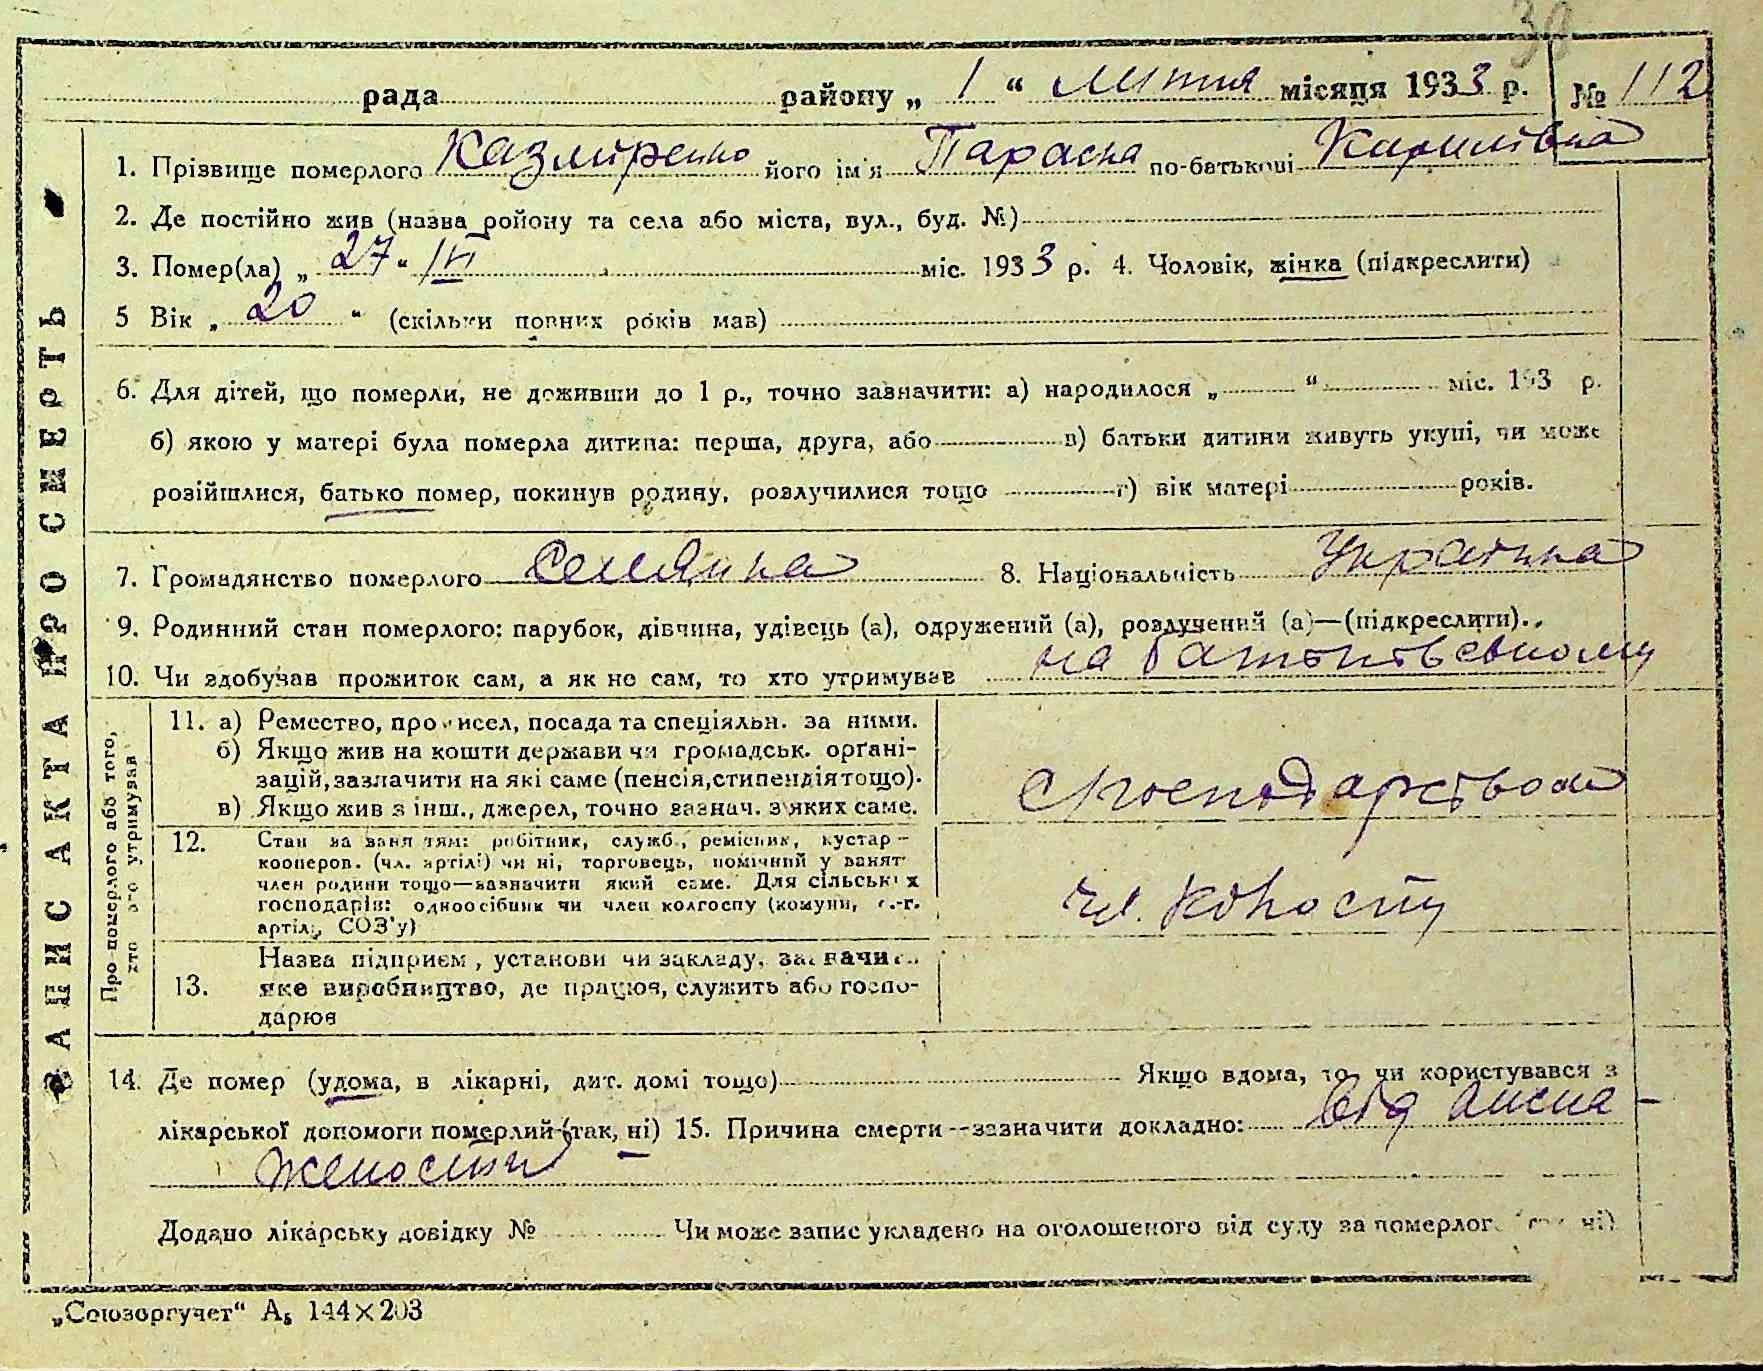 30
рада района „ 1 “ липня місяця 1933 р. № 112
1. Прізвище померлого Казміренко його ім'я Параска по-батькові Кирилівна
2. Де постійно жив (назва ройону та села або міста, вул., буд. №)
3. Помер(ла) „ 27 “ VI міс. 1933 р. 4. Чоловік, жінка (підкреслити)
5 Вік „ 20 “ (скільки повних років мав)
6. Для дітей, що померли, не доживши до 1 р., точно зазначити: а) народилося „ “ міс. 193 р.
б) якою у матері була померла дитина: перша, друга, або в) батьки дитини живуть укупі, чи може
розійшлися, батько помер, покинув родину, розлучилися тощо г) вік матері років.
7. Громадянство померлого Селянка 8. Національність Україінка
9. Родинний стан померлого: парубок, дівчина, удівець (а), одружений (а), розлучений (а)—(підкреслити).
10. Чи здобував прожиток сам, а як не сам, то хто утримував на
ЗАПИС АКТА ПРО СМЕРТЬ
Про померлого або того, хто його утримував
11. а) Ремество, промисел, посада та спеціяльн. за ними.
б) Якщо жив на кошти держави чи громадськ. органі-
зацій, зазначити на які саме (пенсія, стипендія тощо).
в) Якщо жив з інш., джерел, точно зазнач. з яких саме.
господарством
12. Стан за заняттям: робітник, служб., ремісник, кустар-
кооперов. (чл. артілі) чи ні, торговець, помічний у занят
член родини тощо—зазначити який саме. Для сільських
господарів: одноосібник чи член колгоспу (комуни, с.-г.
артілі, СОЗ'у)
чл. колгоспу
13. Назва підприєм, установи чи закладу, зазначити
яке виробництво, де працює, служить або госпо-
дарює
14. Де помер (удома, в лікарні, дит. домі тощо) Якщо вдома, то чи користувався з
лікарської допомоги померлий (так, ні) 15. Причина смерти—зазначити докладно: Від висна-
жености
Додано лікарську довідку № Чи може запис укладено на оголошеного від суду за померлог. ні)
„Союзоргучет“ А₅ 144×203